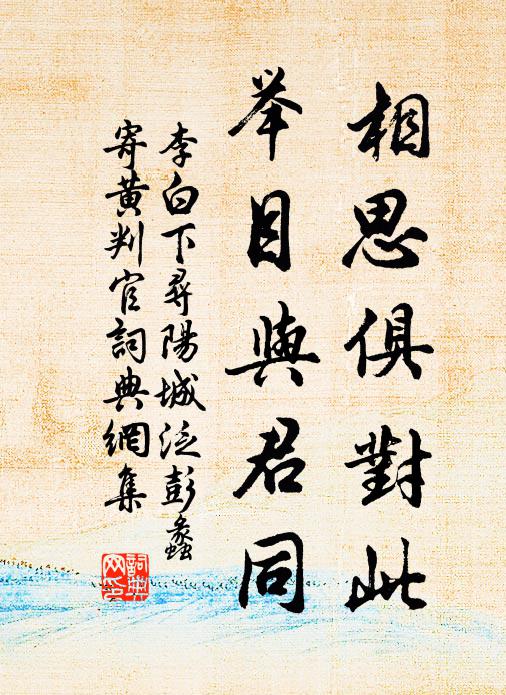 相思俱對此
举目與君同
李白下尋陽城泛彭蠡
寄黄判官詞典網集